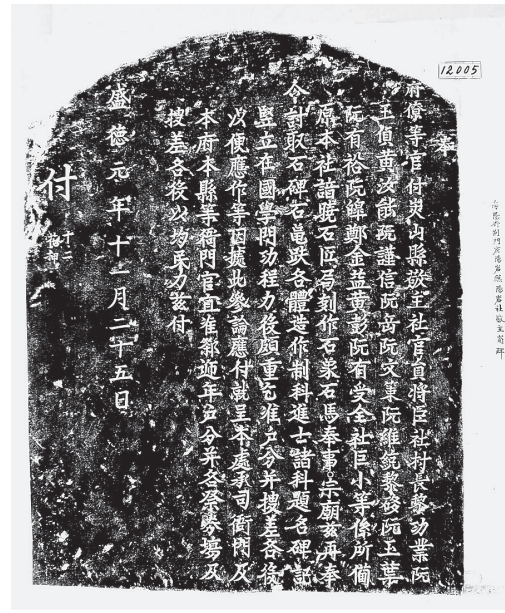 12005
奉
府僚等官付夷山縣敬主社官員將臣社村長黎功業阮
玉傎黃汝能阮謹信阮岳阮文東阮維統黎發阮玉葉
阮有裕阮鐸鄭金益黃彭阮有受全社巨小等係所簡
原本社諳曉石匠局刻作石象石馬奉事宗廟玆再奉
令討取石碑石龜趺各體造作制科進士諸科題名碑記
豎立在國學門功程力役頗重乞准戶分并搜差各役
以便應作等因據此參論應付就呈本處承司衙門及
本府本縣等衙門官宜准鄒遞年戶分并各祭等塲及
搜差各役以均民力玆付
盛德元年十二月二十五日
付